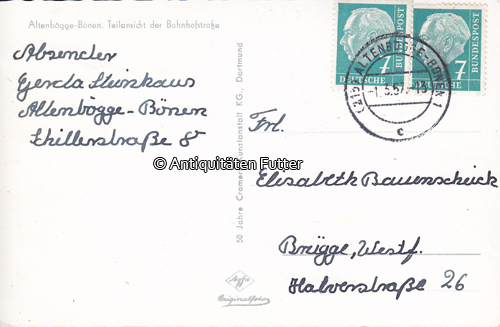 Altenbögge-Bönen. Teilansicht der Bahnhofstraße
Absender
Gerda Steinhaus
Altenbögge-Bönen
Schillerstraße 8
50 Jahre Cramers Kunstanstalt KG., Dortmund
Agfa
Originalfoto
7
DEUTSCHE
BUNDESPOST
7
DEUTSCHE
BUNDESPOST
(21b) ALTENBÖGGE-BÖNEN 1
-1.3.57.
c
Frl.
Elisabeth Bauerscheick
Brügge, Westf.
Halverstraße 26
© Antiquitäten Futter